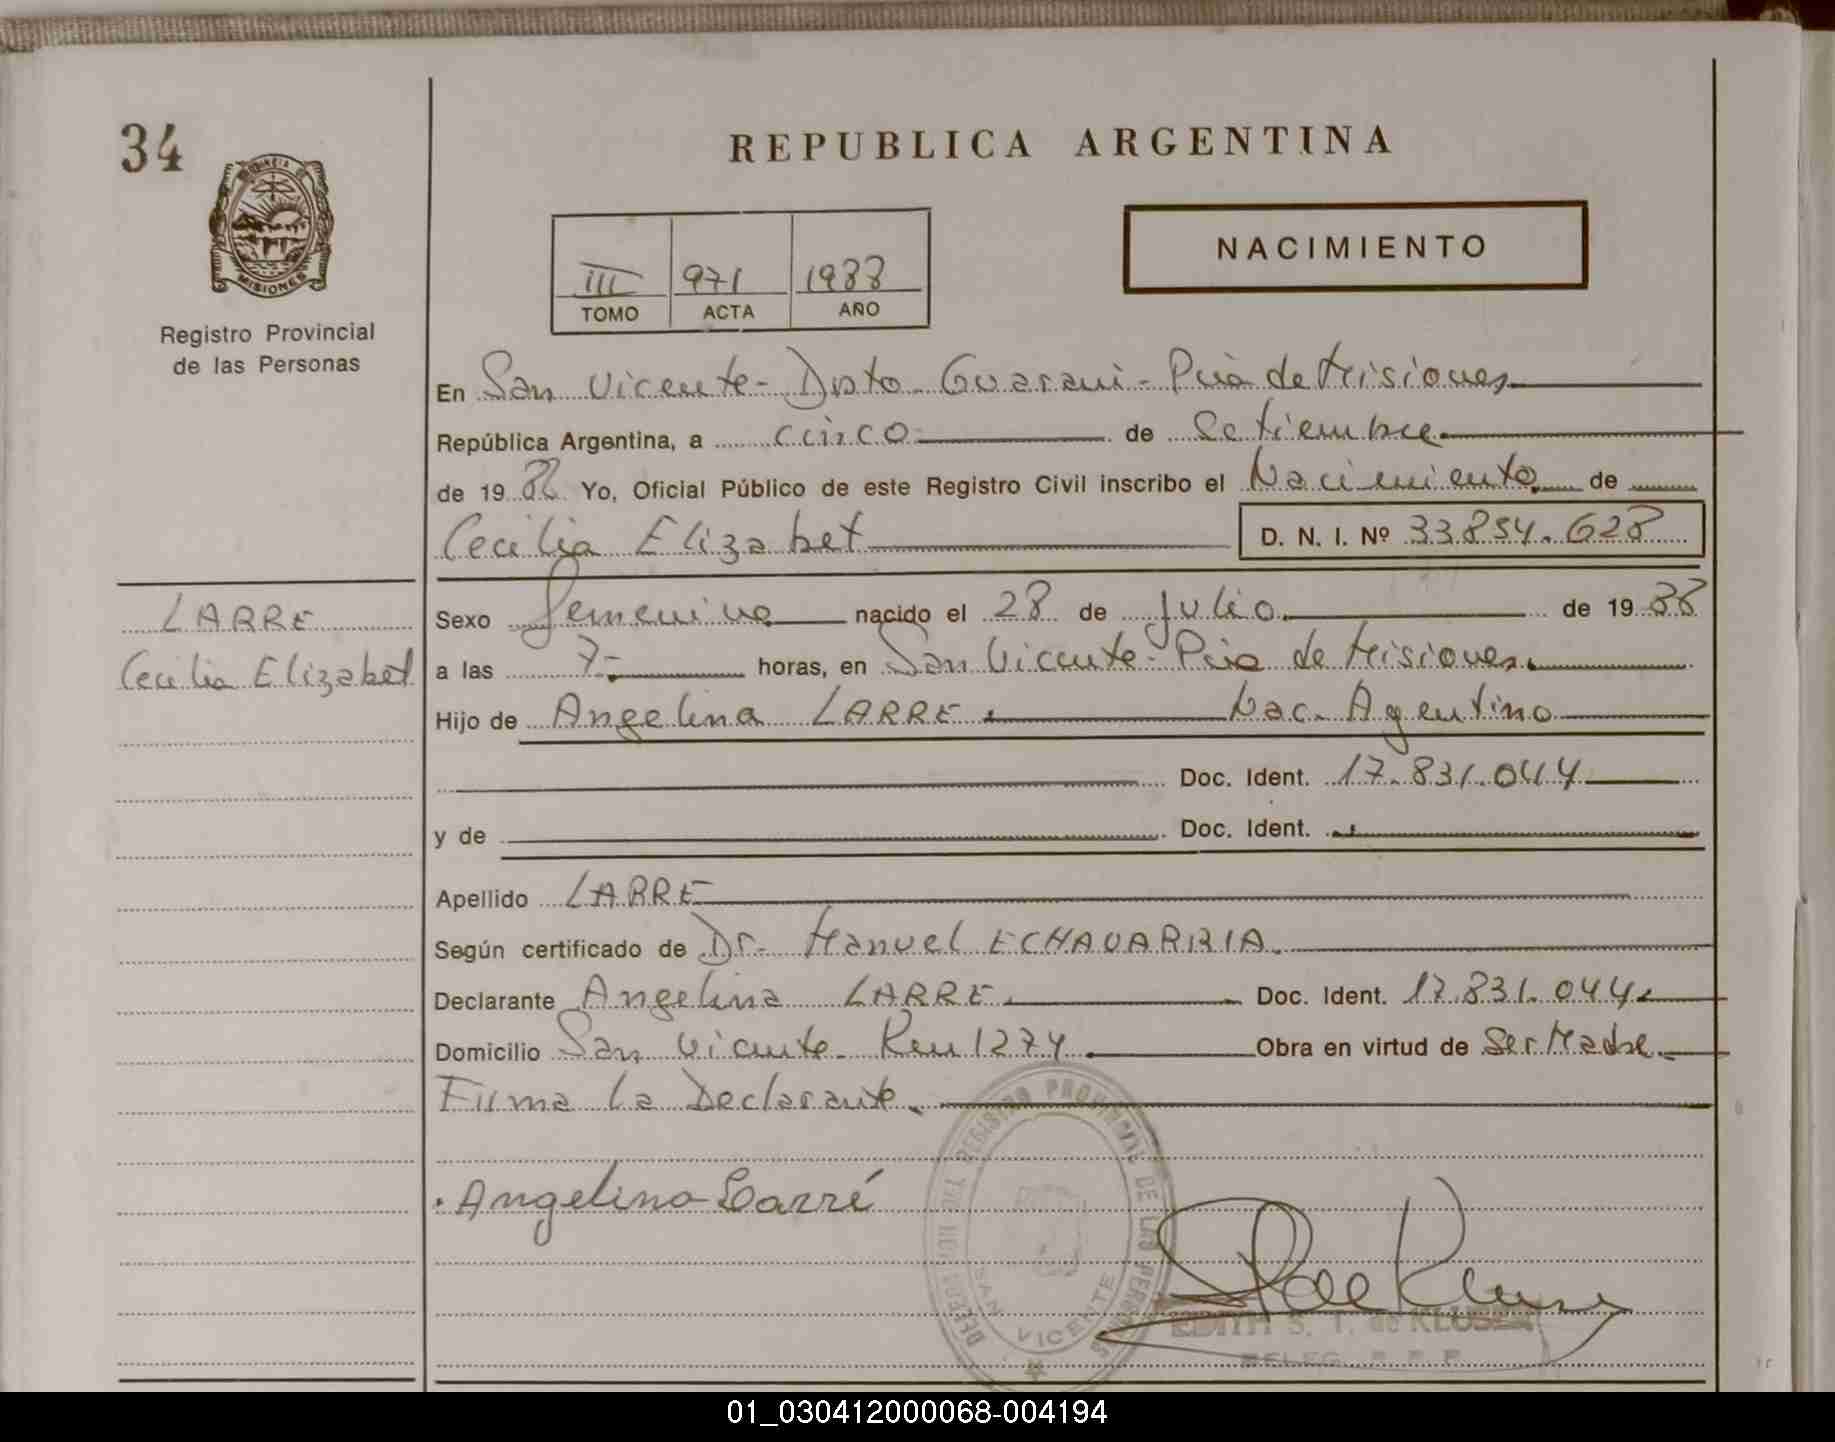 34
REPUBLICA ARGENTINA
PROVINCIA
MISIONES
NACIMIENTO
III 971 1988
TOMO ACTA AÑO
Registro Provincial
de las Personas
En San Vicente - Dpto Guarani - Pcia de Misiones
República Argentina, a cinco de Setiembre
de 19 88 Yo, Oficial Público de este Registro Civil inscribo el Nacimiento de
Cecilia Elizabet D. N. I. Nº 33.854.628
LARRE
Cecilia Elizabet
Sexo femenino nacido el 28 de Julio de 19 88
a las 7- horas, en San Vicente - Pcia de Misiones
Hijo de Angelina LARRE Nac. Agentino
Doc. Ident. 17.831.044
y de Doc. Ident.
Apellido LARRE
Según certificado de Dr. Manuel ECHAVARRIA
Declarante Angelina LARRE Doc. Ident. 17.831.044
Domicilio San Vicente Km 1274 Obra en virtud de Ser Madre
Firma la Declarante
REGISTRO PROVINCIAL DE LAS PERSONAS
SAN VICENTE
Angelina Larré
EDITH S. T. de
DELEG. R. P. P.
01_030412000068-004194